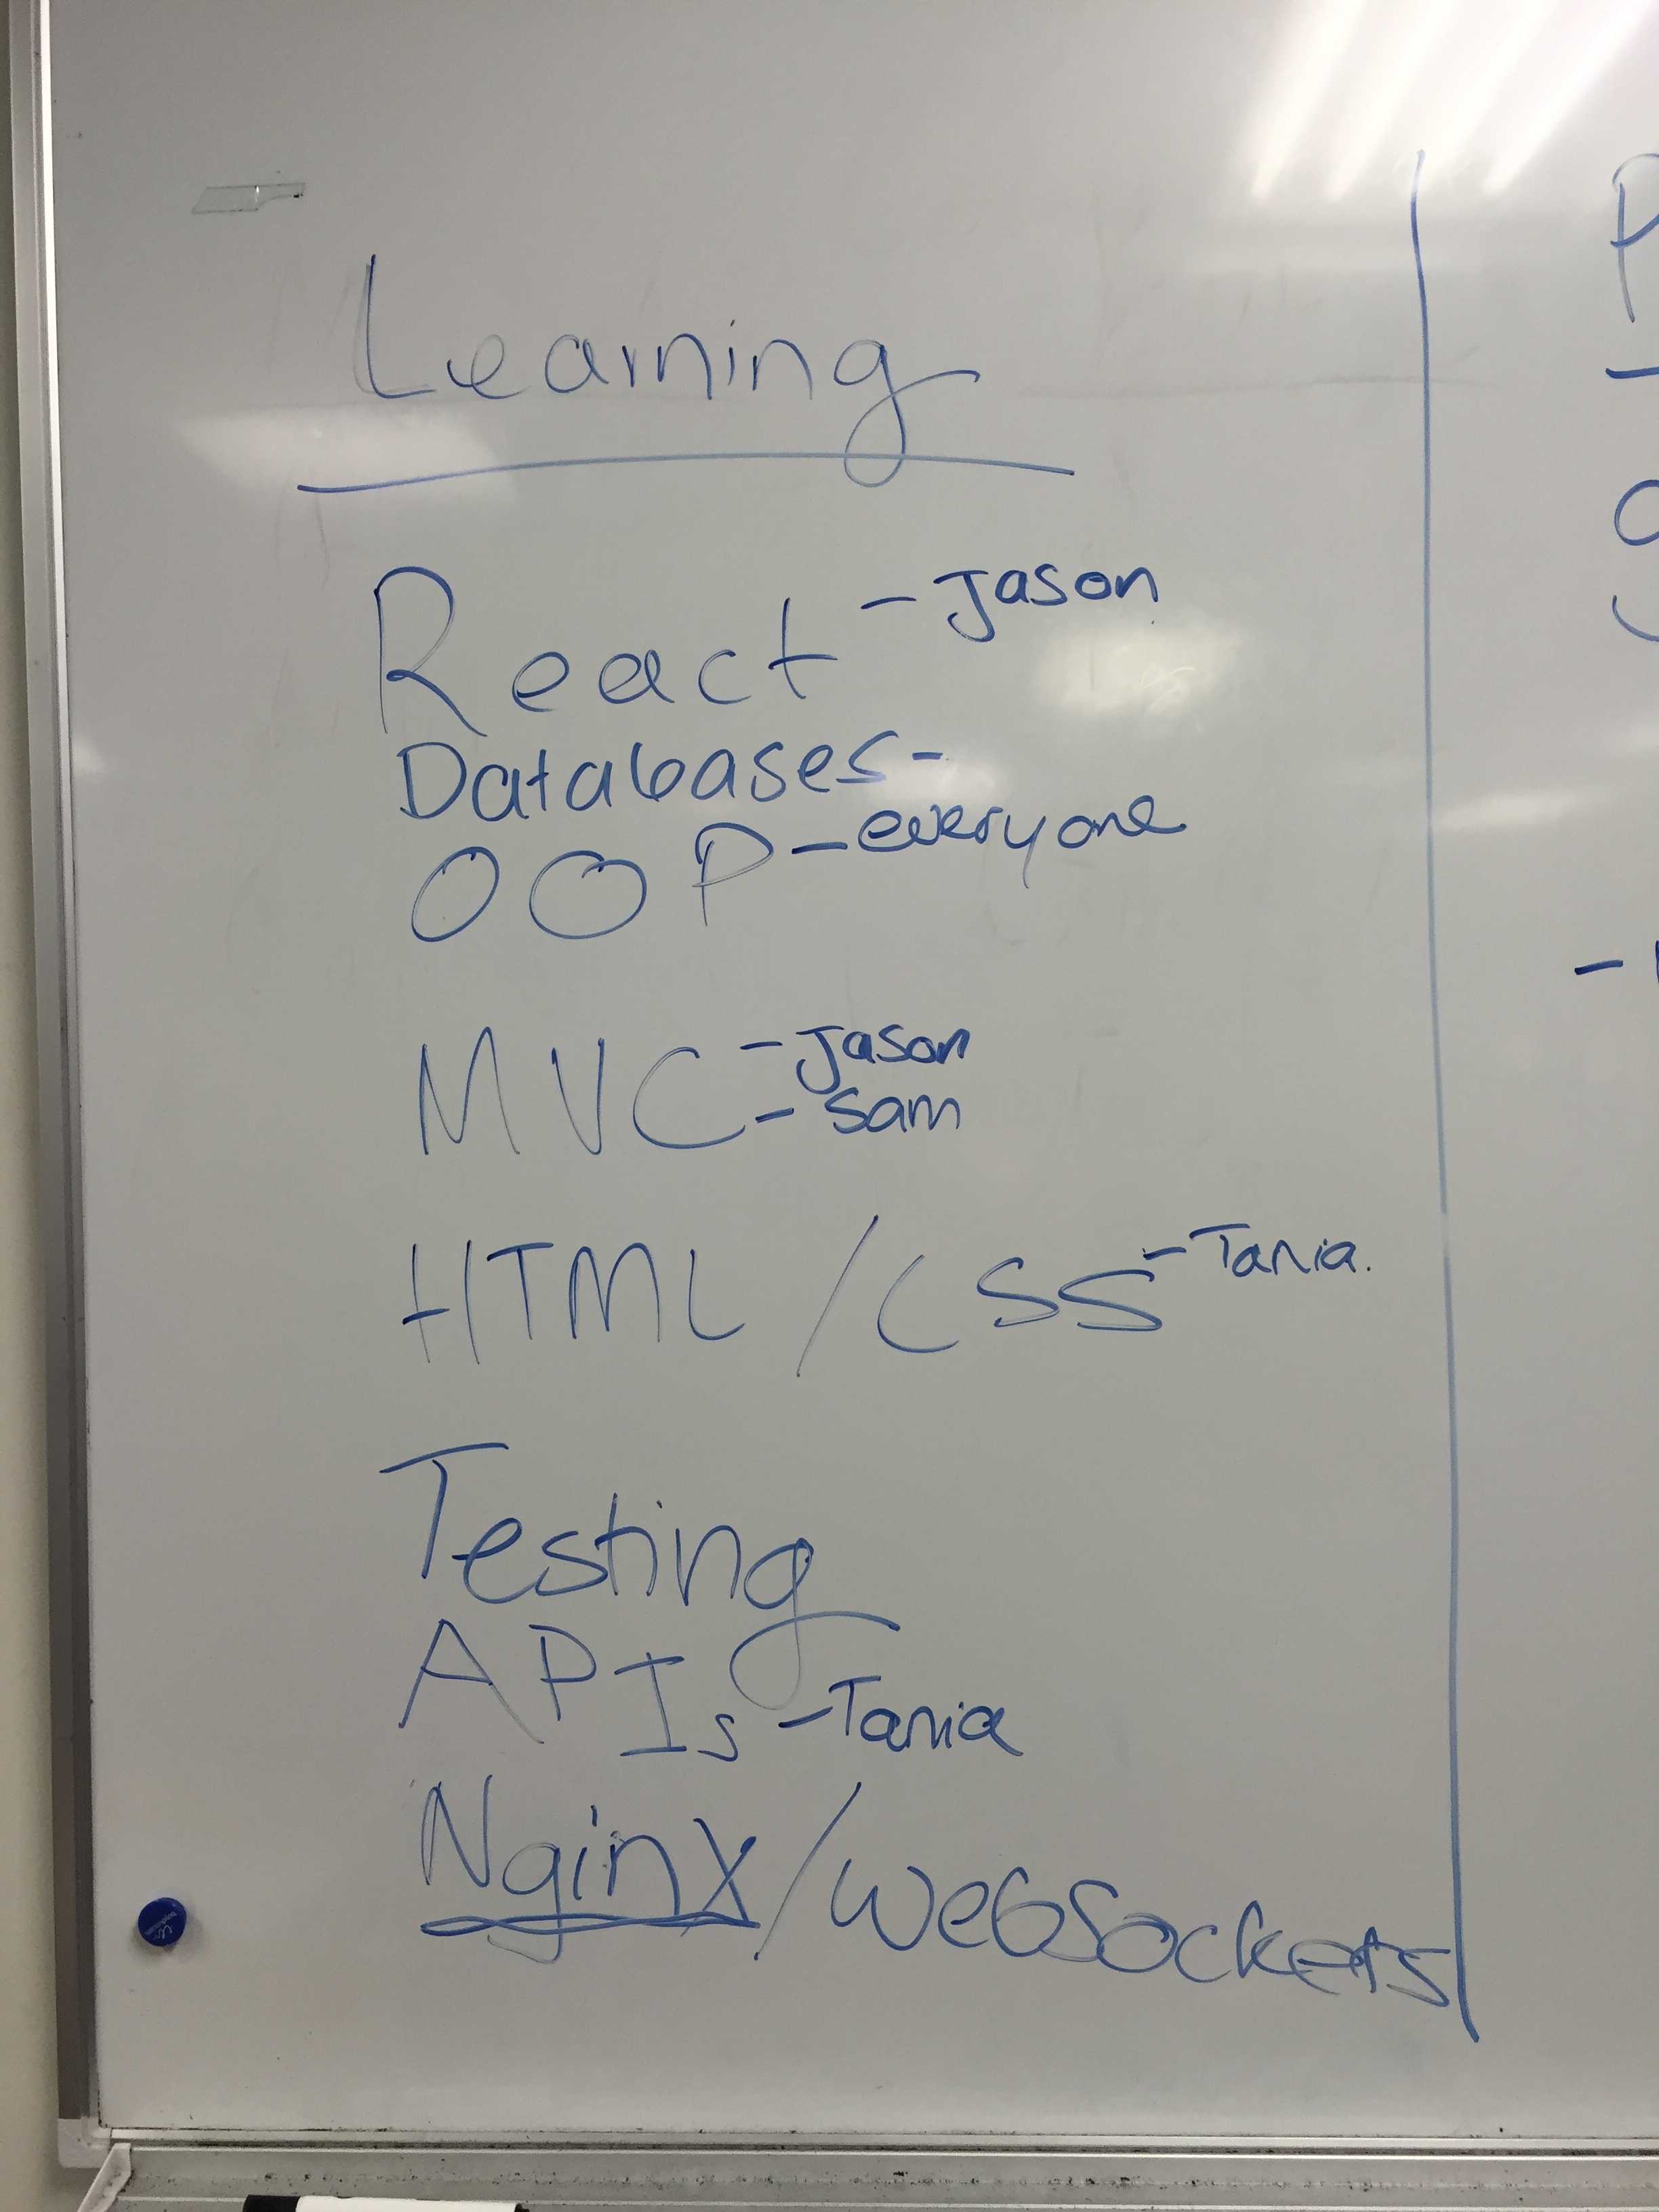 Learning
React - Jason
Databases-
OOP - everyone
MVC - Jason
- Sam
HTML / CSS - Tania.
Testing
APIs - Tania
Nginx/Websockets